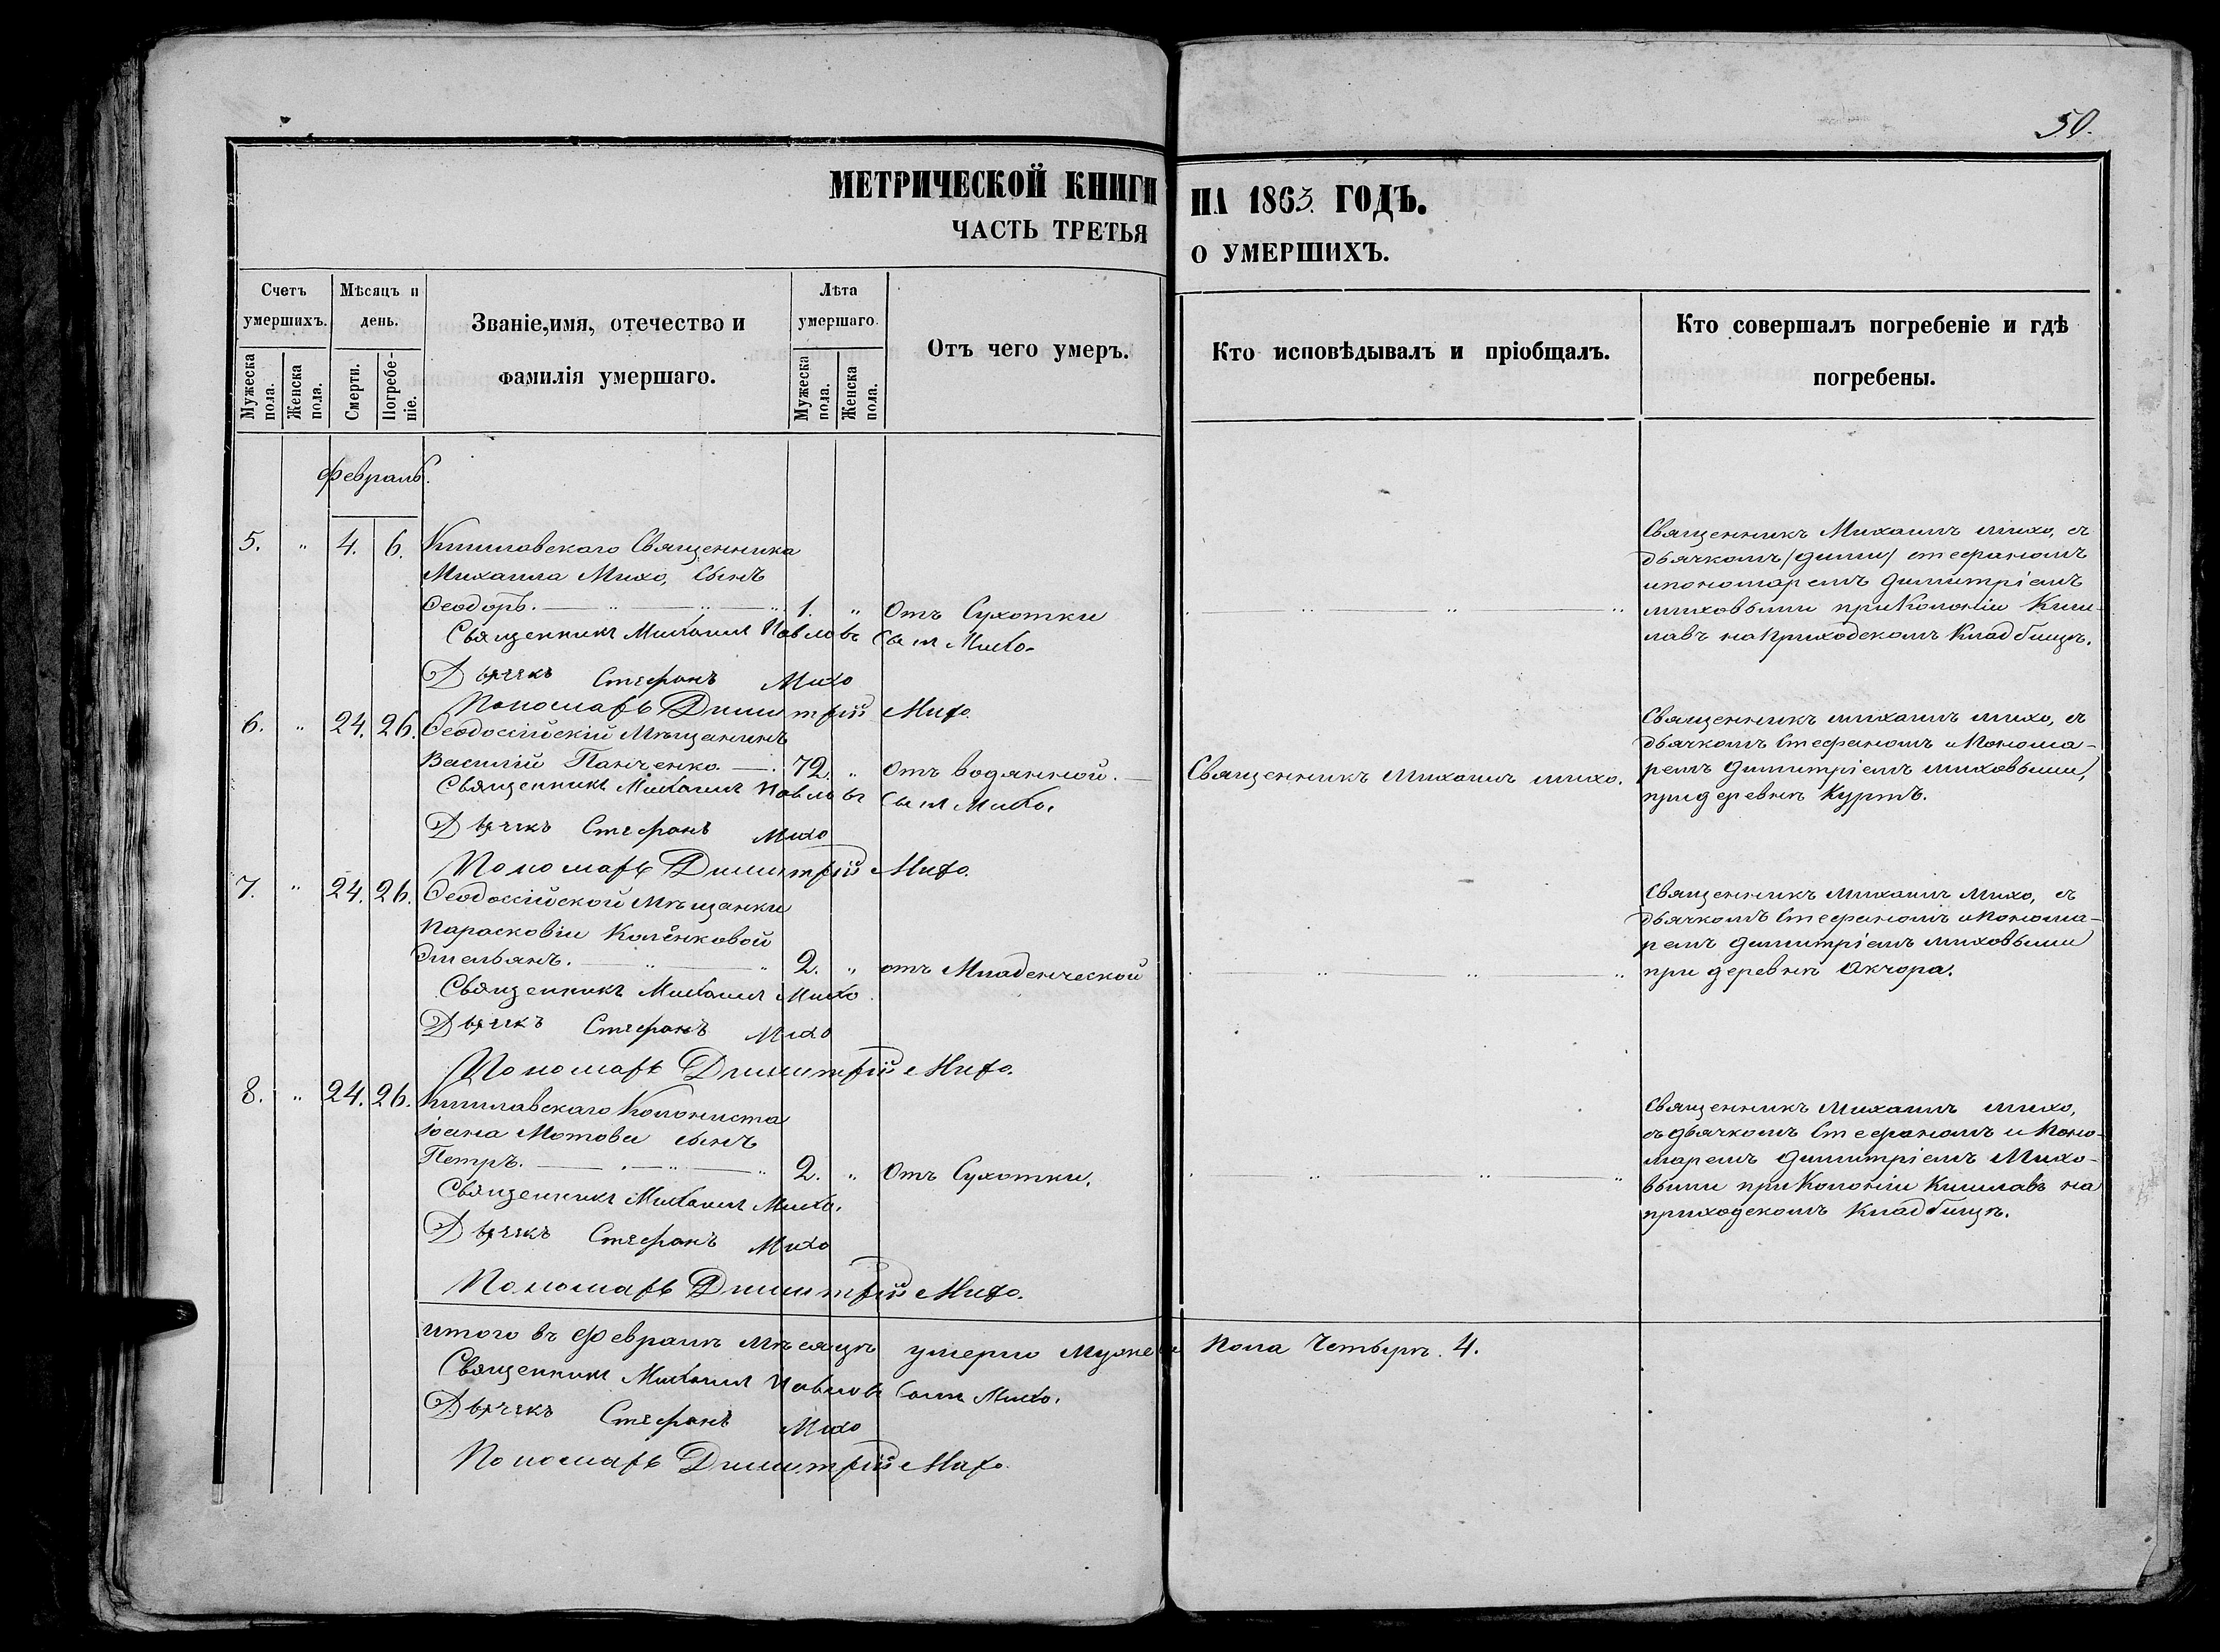 50.
МЕТРИЧЕСКОЙ КНИГИ НА 1863 ГОДЪ.
ЧАСТЬ ТРЕТЬЯ О УМЕРШИХЪ.
Счетъ умершихъ.
Мужеска пола.
Женска пола.
Мѣсяцъ и день.
Смерти.
Погребеніе.
Званіе,имя, отечество и
фамилія умершаго.
Лѣта умершаго.
Мужеска пола.
Женска пола.
Отъ чего умеръ.
Кто исповѣдывалъ и пріобщалъ.
Кто совершалъ погребеніе и гдѣ
погребены.
Февраль.
5. " 4. 6. Кишлавскаго Священника
Михаила Михо, сынъ
Феодоръ. 1. " Отъ Сухотки
Священникъ Михаилъ Михо, съ
дьячкомъ Стефаномъ
и пономаремъ Димитріемъ
Миховыми при Колоніи Киш-
лавъ на Приходскомъ Кладбищѣ.
Священникъ Михаилъ Павловъ Сынъ Михо.
Дьячекъ Стефанъ Михо
Пономарь Димитрій Михо.
6. " 24. 26. Феодосійскій Мѣщанинъ
Василій Панченко. 72. " Отъ водянной. Священникъ Михаилъ Михо.
Священникъ Михаилъ Михо, съ
дьячкомъ Стефаномъ и Понома-
ремъ Димитріемъ Миховыми,
при деревнѣ Куртъ.
Священникъ Михаилъ Павловъ Сынъ Михо.
Дьячекъ Стефанъ Михо
Пономарь Димитрій Михо.
7. " 24. 26. Феодосійской Мѣщанки
Парасковіи Колѣнковой
Эмельянъ. 2. " отъ Младенческой
Священникъ Михаилъ Михо, съ
дьячкомъ Стефаномъ и Понома-
ремъ Димитріемъ Миховыми
при деревнѣ Акчора.
Священникъ Михаилъ Михо
Дьячекъ Стефанъ Михо
Пономарь Димитрій Михо.
8. " 24. 26. Кишлавскаго Колониста
Іоана Мотова сынъ
Петръ. 2. " Отъ Сухотки.
Священникъ Михаилъ Михо,
съ дьячкомъ Стефаномъ и Поно-
маремъ Димитріемъ Михо-
выми при Колоніи Кишлавъ на
приходскомъ Кладбищѣ.
Священникъ Михаилъ Михо.
Дьячекъ Стефанъ Михо
Пономарь Димитрій Михо.
Итого въ Февралѣ мѣсяцѣ умерло Мужеска Пола Четыре. 4.
Священникъ Михаилъ Павловъ Сынъ Михо.
Дьячекъ Стефанъ Михо
Пономарь Димитрій Михо